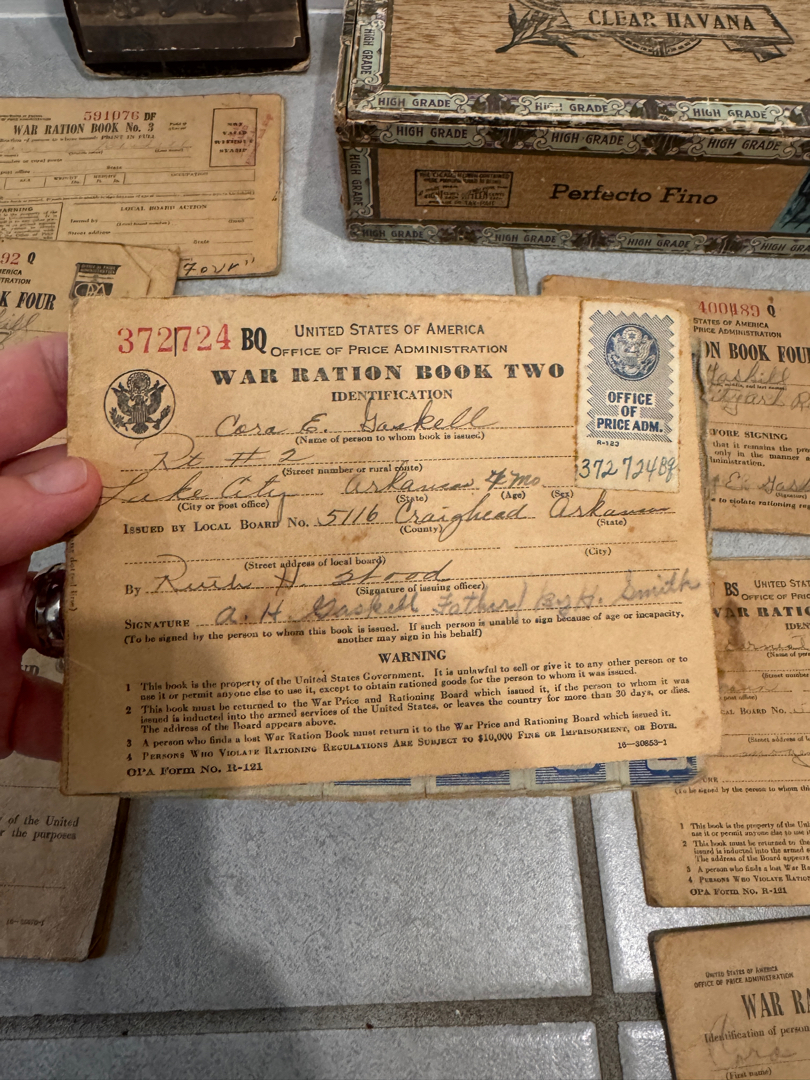 CLEAR HAVANA
HIGH GRADE
HIGH GRADE HIGH GRADE HIGH GRADE
HIGH GRADE HIGH GRADE HIGH GRADE
HIGH GRADE
Perfecto Fino
HIGH GRADE HIGH GRADE HIGH GRADE HIGH GRADE
591076 DF
WAR RATION BOOK No. 3
NOT
VALID
WITHOUT
STAMP
LOCAL BOARD ACTION
Issued by
Street address
Four"
92 Q
ERICA
TRATION
K FOUR
372724 BQ
UNITED STATES OF AMERICA
OFFICE OF PRICE ADMINISTRATION
WAR RATION BOOK TWO
IDENTIFICATION
OFFICE
OF
PRICE ADM.
R-123
372724Bq
Cora E. Gaskell
(Name of person to whom book is issued)
Rt # 2
(Street number or rural route)
Lake City Arkansas 4 mo
(City or post office) (State) (Age) (Sex)
ISSUED BY LOCAL BOARD NO. 5116 Craighead Arkansas
(County) (State)
(Street address of local board) (City)
By Ruth H. Stood
(Signature of issuing officer)
SIGNATURE A. H. Gaskell Father) By H. Smith
(To be signed by the person to whom this book is issued. If such person is unable to sign because of age or incapacity,
another may sign in his behalf)
WARNING
1 This book is the property of the United States Government. It is unlawful to sell or give it to any other person or to
use it or permit anyone else to use it, except to obtain rationed goods for the person to whom it was issued.
2 This book must be returned to the War Price and Rationing Board which issued it, if the person to whom it was
issued is inducted into the armed services of the United States, or leaves the country for more than 30 days, or dies.
The address of the Board appears above.
3 A person who finds a lost War Ration Book must return it to the War Price and Rationing Board which issued it.
4 PERSONS WHO VIOLATE RATIONING REGULATIONS ARE SUBJECT TO $10,000 FINE OR IMPRISONMENT, OR BOTH.
OPA FORM NO. R-121
16-30853-1
400489 Q
STATES OF AMERICA
PRICE ADMINISTRATION
ON BOOK FOU
Gaskell
FORE SIGNING
that it remains the pro
only in the manner a
ministration.
E. Gask
to violate rationing reg
BS UNITED STAT
OFFICE OF PRIC
WAR RATIO
IDEN
(Name of pers
(Street number
CAL BOARD NO.
(Street address of l
URE
(To be signed by the person to whom this
1 This book is the property of the Uni
use it or permit anyone else to use it
2 This book must be returned to the War
issued is inducted into the armed s
The address of the Board appears a
3 A person who finds a lost War Ra
4 PERSONS WHO VIOLATE RATIONIN
OPA FORM NO. R-121
of the United
r the purposes
UNITED STATES OF AMERICA
OFFICE OF PRICE ADMINISTRATION
WAR RA
Identification of person
Cora
(First name)